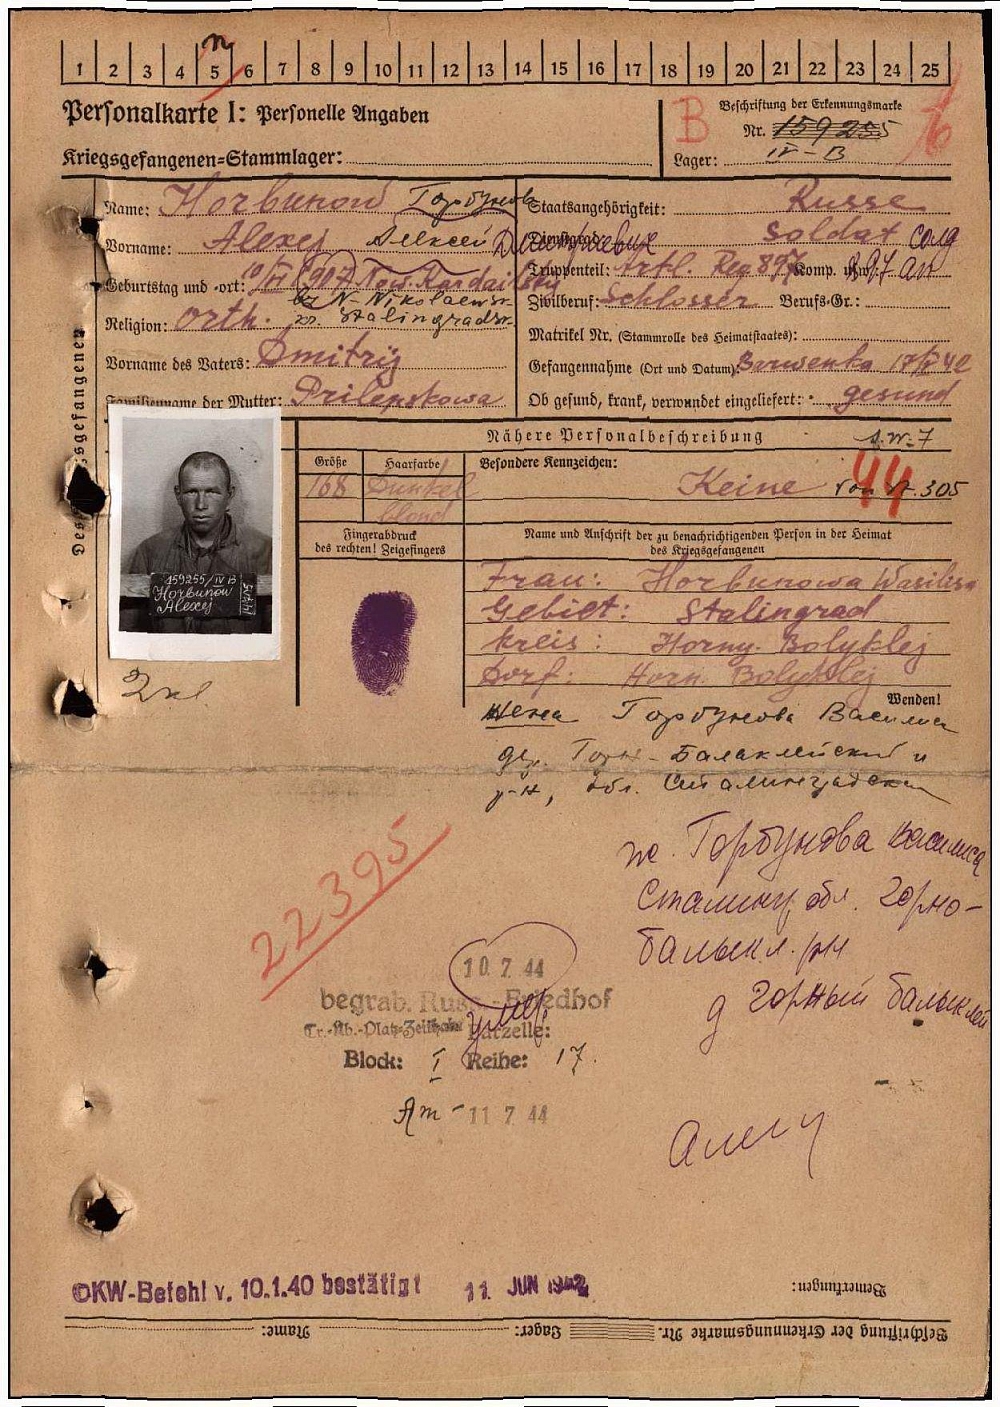 1 2 3 4 5 6 7 8 9 10 11 12 13 14 15 16 17 18 19 20 21 22 23 24 25
Personalkarte I: Personelle Angaben
Kriegsgefangenen=Stammlager:
B
Beschriftung der Erkennungsmarke
Nr. 159255
Lager: IV-B
Des Kriegsgefangenen
Name: Horbunow Горбунов
Vorname: Alexej Алексей Дмитриевич
Geburtstag und -ort: 1907 New.
N-Nikolaewsk.
Stalingradsk.
Religion: orth.
Vorname des Vaters: Dmitrij
Familienname der Mutter: Prilepskowa
Staatsangehörigkeit: Russe
Dienstgrad: Soldat солд
Truppenteil: Artl. Reg 897 Komp. usw.: 897 ап
Zivilberuf: Schlosser Berufs-Gr.:
Matrikel Nr. (Stammrolle des Heimatstaates):
Gefangennahme (Ort und Datum): Barwenka
Ob gesund, krank, verwundet eingeliefert: gesund
Nähere Personalbeschreibung
Größe
Haarfarbe
Besondere Kennzeichen:
168
Dunkel
blond
Keine
44
305
Fingerabdruck
des rechten! Zeigefingers
Name und Anschrift der zu benachrichtigenden Person in der Heimat
des Kriegsgefangenen
Frau: Horbunowa Wasilisa
Gebiet: Stalingrad
Kreis: Horny. Bolyklej
Dorf: Horn. Bolyklej
159255/IV B
Horbunow
Alexej
Wenden!
жена Горбунова Василиса
дер. Горн-Балаклейский
р-н, обл. Сталинградская
ж. Горбунова Василиса
Сталингр. обл. Горно-
балыкл. рн
д Горный балыклей
22395
10 7 44
begrab. Russ.-Friedhof
Tr.-Üb.-Platz-Zeithain Parzelle:
умер
Block: I Reihe: 17.
Am - 11 7 44
OKW-Befehl v. 10.1.40 bestätigt 11. JUN 1942
Bemerkungen:
Beschriftung der Erkennungsmarke Nr. Lager: Name: